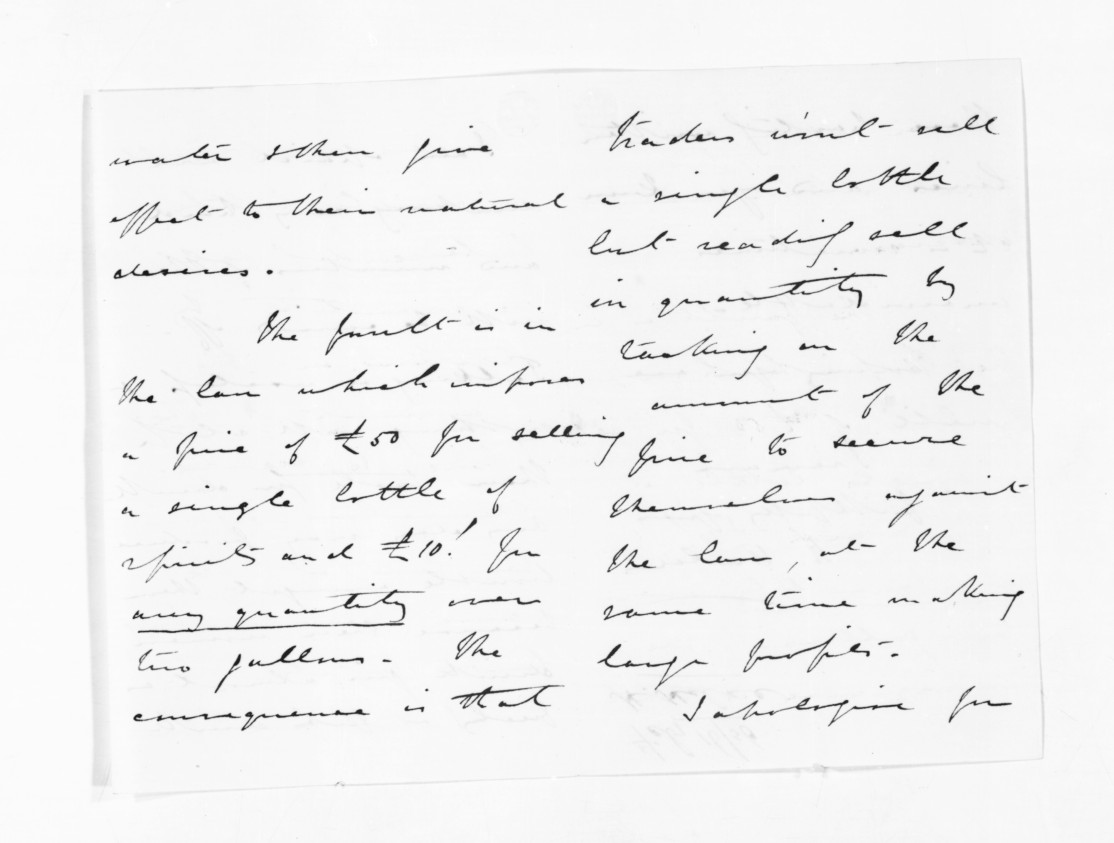 water & then give
effect to their natural
desires.
The fault is in
the law which imposes
a fine of £50 for selling
a single bottle of
spirits and £10! for
any quantity over
two gallons. The
consequence is that
traders won't sell
a single bottle
but readily sell
in quantity by
tacking on the
amount of the
fine to secure
themselves against
the law, at the
same time making
large profits.
I apologise for